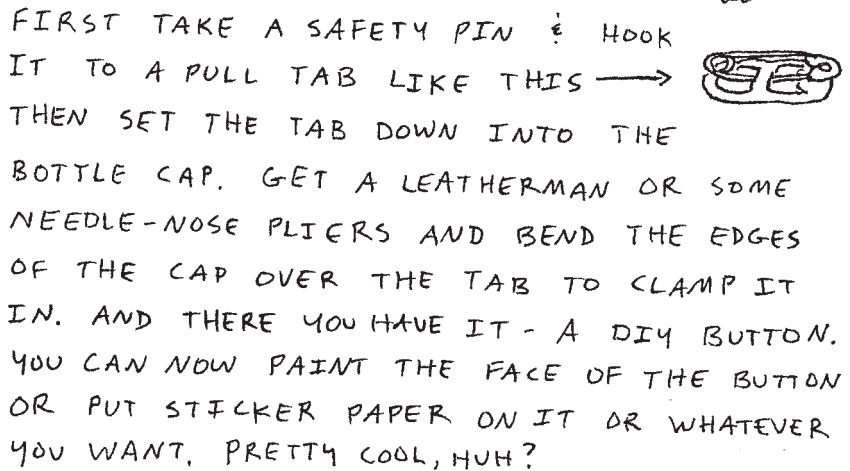 FIRST TAKE A SAFETY PIN & HOOK
IT TO A PULL TAB LIKE THIS
THEN SET THE TAB DOWN INTO THE
BOTTLE CAP. GET A LEATHERMAN OR SOME
NEEDLE-NOSE PLIERS AND BEND THE EDGES
OF THE CAP OVER THE TAB TO CLAMP IT
IN. AND THERE YOU HAVE IT - A DIY BUTTON.
YOU CAN NOW PAINT THE FACE OF THE BUTTON
OR PUT STICKER PAPER ON IT OR WHATEVER
YOU WANT. PRETTY COOL, HUH?